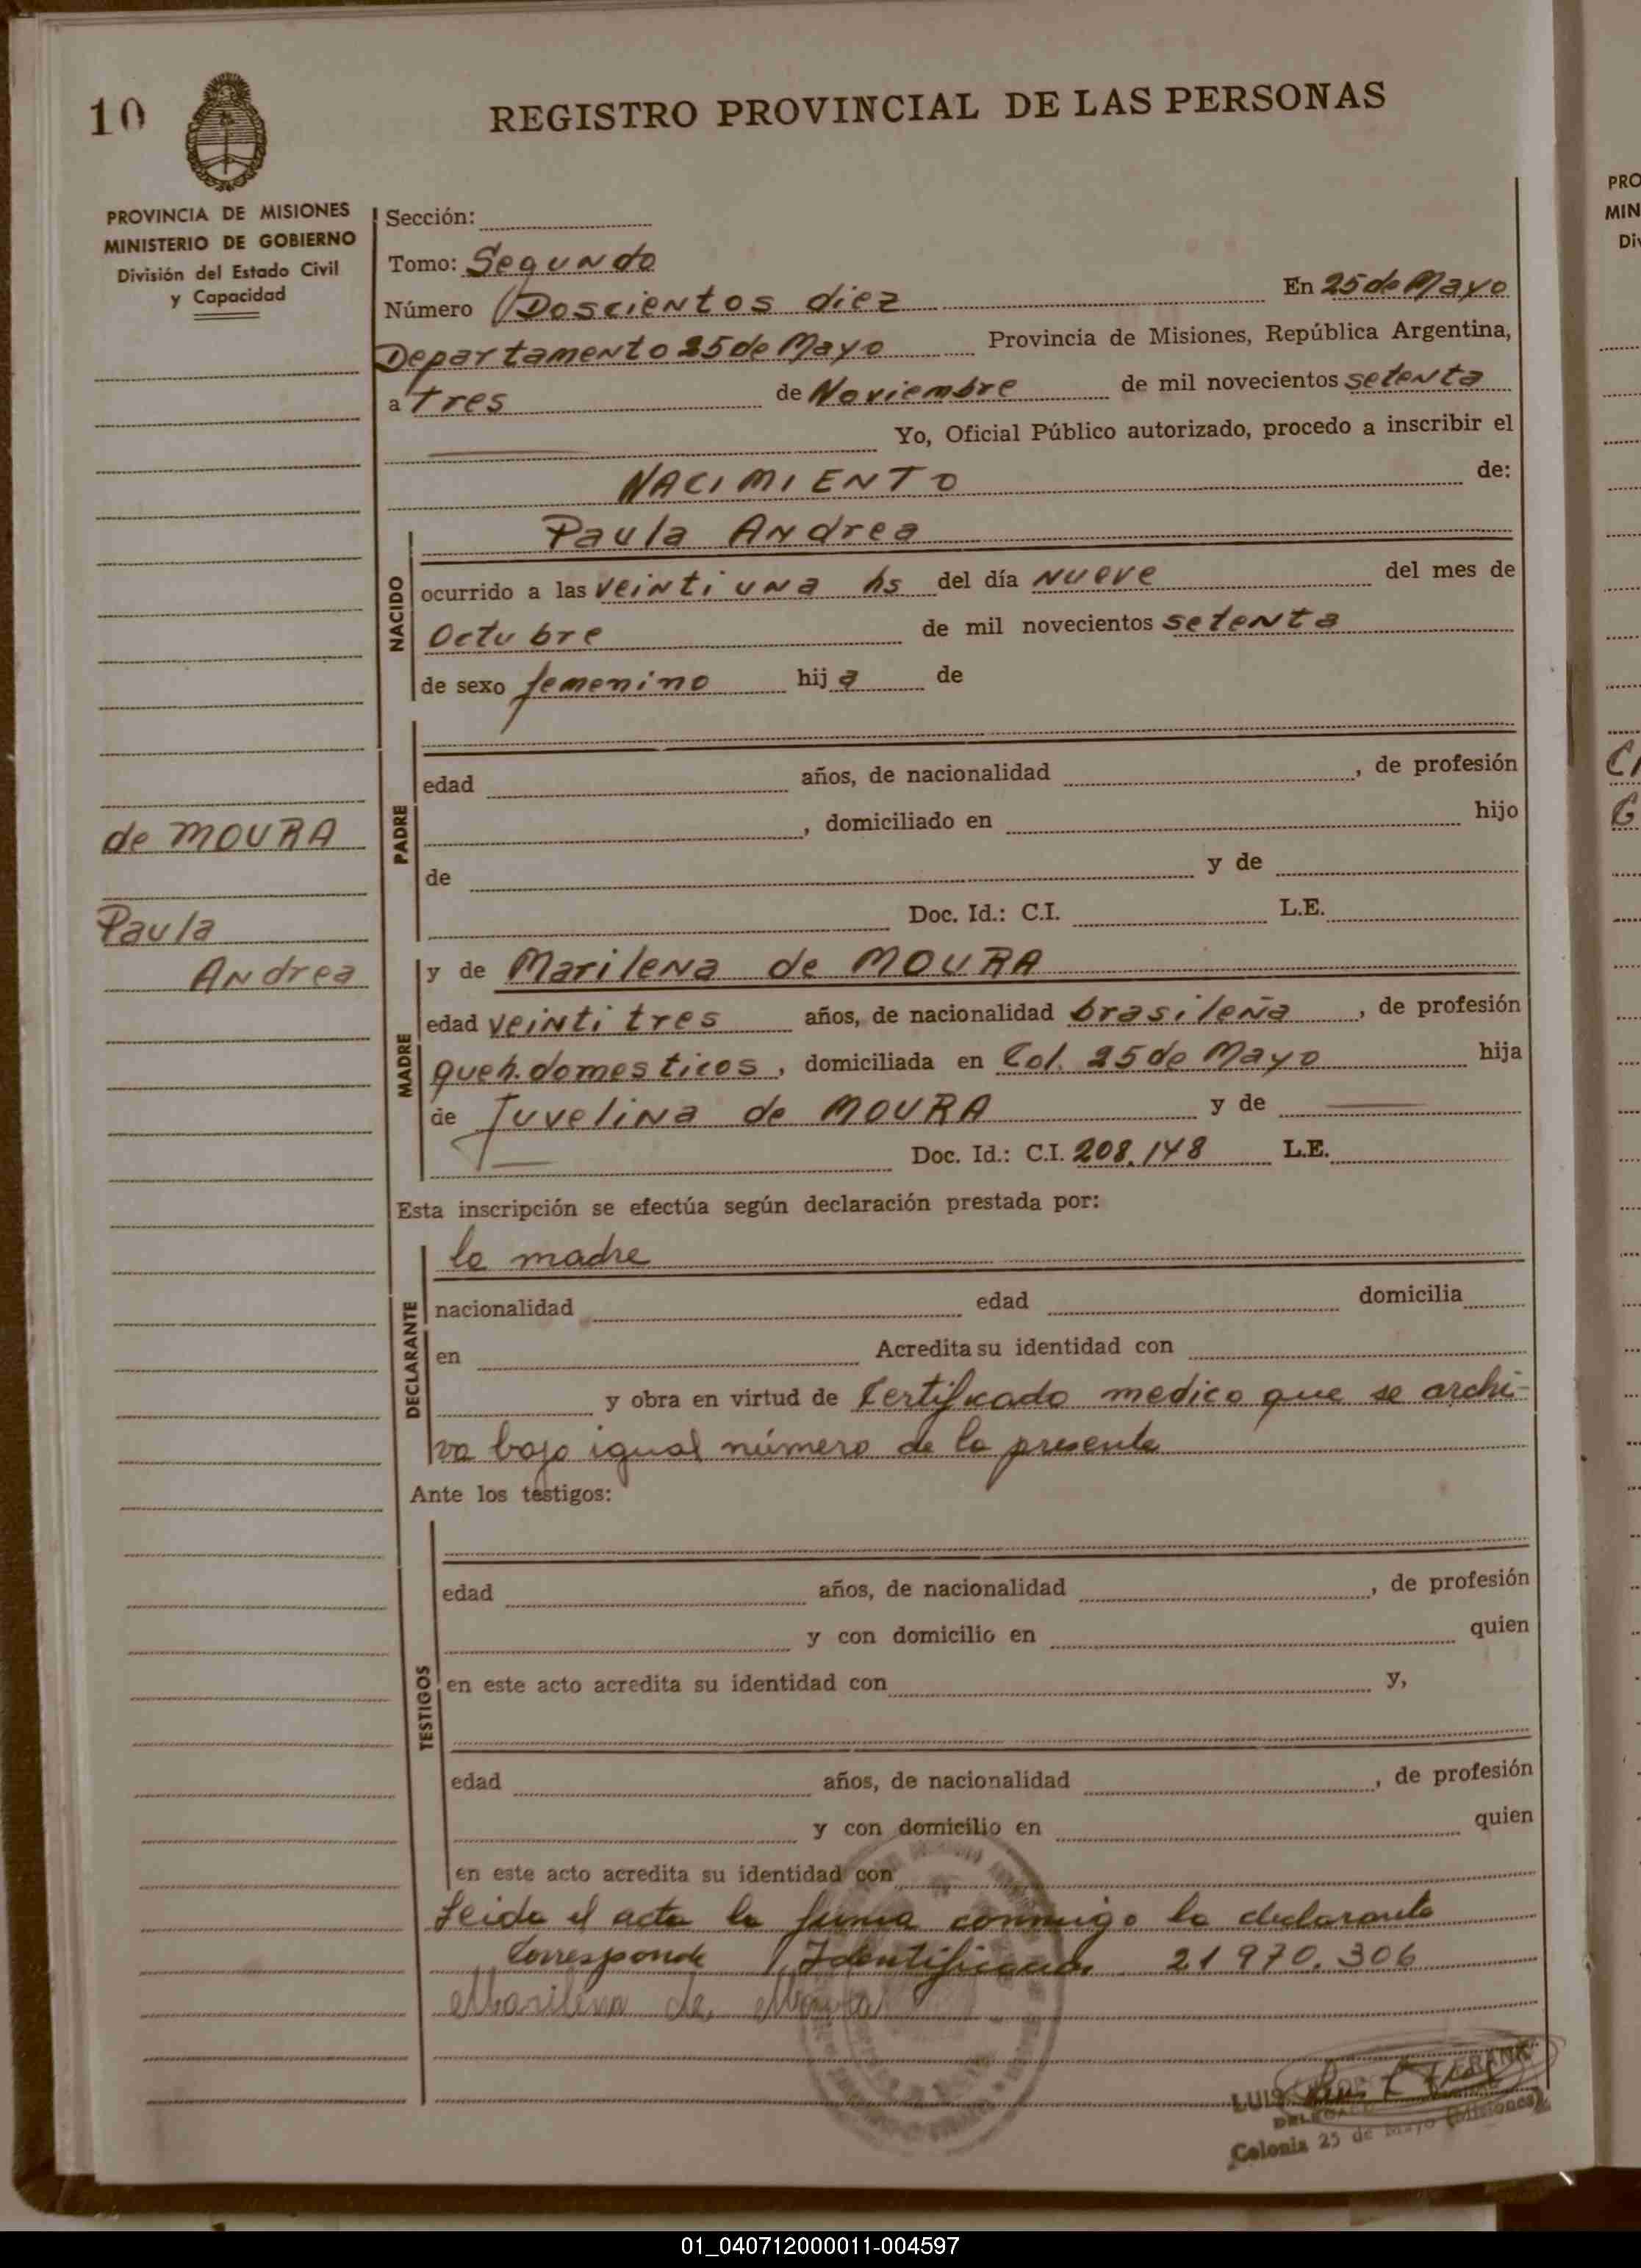 10
REGISTRO PROVINCIAL DE LAS PERSONAS
PROVINCIA DE MISIONES
MINISTERIO DE GOBIERNO
División del Estado Civil
y Capacidad
Sección:
Tomo: Segundo
Número Doscientos diez En 25 de Mayo
Departamento 25 de Mayo Provincia de Misiones, República Argentina,
a tres de Noviembre de mil novecientos setenta
Yo, Oficial Público autorizado, procedo a inscribir el
NACIMIENTO de:
NACIDO
Paula Andrea
ocurrido a las veinti una hs del día nueve del mes de
Octubre de mil novecientos setenta
de sexo femenino hija de
PADRE
edad años, de nacionalidad , de profesión
, domiciliado en hijo
de y de
Doc. Id.: C.I. L.E.
de MOURA
Paula
Andrea
MADRE
y de Marilena de MOURA
edad veinti tres años, de nacionalidad brasileña , de profesión
queh. domesticos , domiciliada en Col. 25 de Mayo hija
de Juvelina de MOURA y de
Doc. Id.: C.I. 208.148 L.E.
Esta inscripción se efectúa según declaración prestada por:
DECLARANTE
la madre
nacionalidad edad domicilia
en Acredita su identidad con
y obra en virtud de Certificado medico que se archi-
va bajo igual número de la presente
Ante los testigos:
TESTIGOS
edad años, de nacionalidad , de profesión
y con domicilio en quien
en este acto acredita su identidad con y,
edad años, de nacionalidad , de profesión
y con domicilio en quien
en este acto acredita su identidad con
Leida el acta la firma conmigo la declarante
Corresponde Identificación 21970.306
Marilena de Moura
LUIS FRANK
DELEGADO
Colonia 25 de Mayo (Misiones)
PRO
MIN
Di
01_040712000011-004597